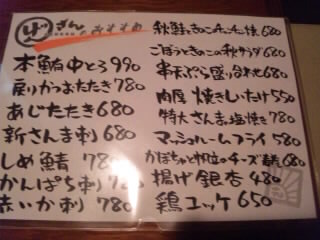 ざん
おすすめ
本鮪中とろ 990
戻りかつおたたき 780
あじたたき 680
新さんま刺 680
しめ鯖 780
かんぱち刺 780
赤いか刺 780
秋鮭ときのこの 焼 680
ごぼうときのこの秋サラダ 580
串天ぷら盛り合わせ 680
肉厚焼きしいたけ 550
特大さんま塩焼き 780
マッシュルームフライ 580
かぼちゃと帆立のチーズ 680
揚げ銀杏 480
鶏ユッケ 650